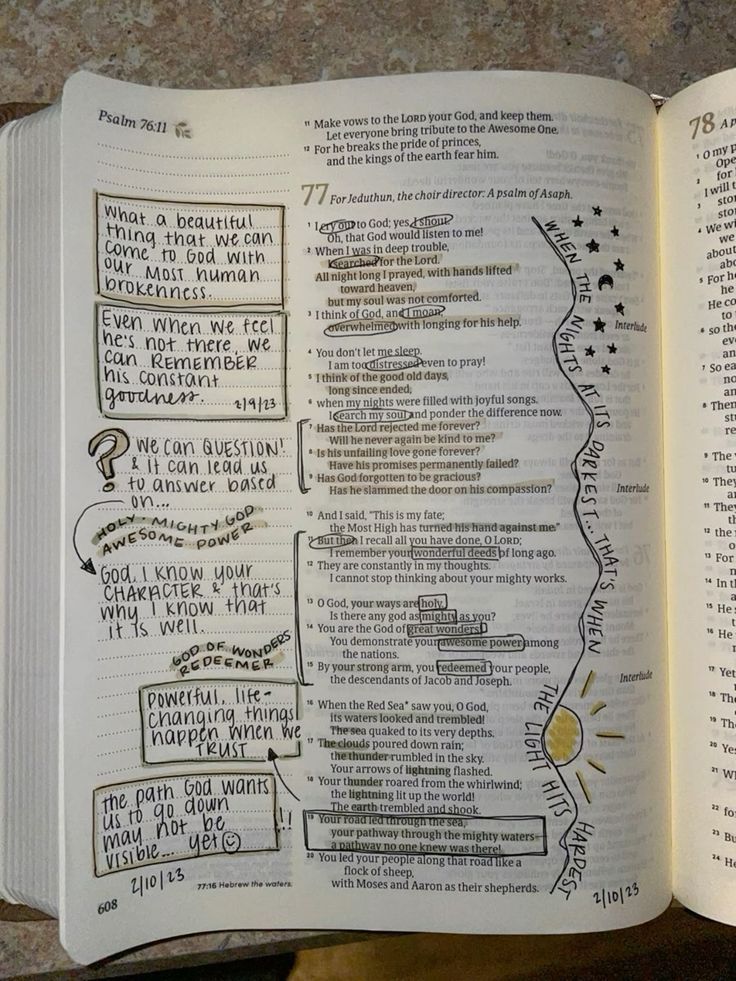 Psalm 76:11
What a beautiful
thing that we can
come to God with
our most human
brokenness.
Even when we feel
he's not there, we
can REMEMBER
his constant
goodness. 2/9/23
? We can QUESTION!
& it can lead us
to answer based
on...
HOLY · MIGHTY GOD
AWESOME POWER
God, I know your
CHARACTER & that's
why I know that
it is well.
GOD OF WONDERS
REDEEMER
powerful, life-
changing things
happen when we
TRUST
the path God wants
us to go down
may not be
visible... yet ☺ !!
2/10/23
608
11 Make vows to the LORD your God, and keep them.
Let everyone bring tribute to the Awesome One.
12 For he breaks the pride of princes,
and the kings of the earth fear him.
77 For Jeduthun, the choir director: A psalm of Asaph.
1 I cry out to God; yes, I shout.
Oh, that God would listen to me!
2 When I was in deep trouble,
I searched for the Lord.
All night long I prayed, with hands lifted
toward heaven,
but my soul was not comforted.
3 I think of God, and I moan,
overwhelmed with longing for his help.
Interlude
4 You don't let me sleep.
I am too distressed even to pray!
5 I think of the good old days,
long since ended,
6 when my nights were filled with joyful songs.
I search my soul and ponder the difference now.
7 Has the Lord rejected me forever?
Will he never again be kind to me?
8 Is his unfailing love gone forever?
Have his promises permanently failed?
9 Has God forgotten to be gracious?
Has he slammed the door on his compassion?
Interlude
10 And I said, "This is my fate;
the Most High has turned his hand against me."
11 But then I recall all you have done, O LORD;
I remember your wonderful deeds of long ago.
12 They are constantly in my thoughts.
I cannot stop thinking about your mighty works.
13 O God, your ways are holy.
Is there any god as mighty as you?
14 You are the God of great wonders!
You demonstrate your awesome power among
the nations.
15 By your strong arm, you redeemed your people,
the descendants of Jacob and Joseph.
Interlude
16 When the Red Sea* saw you, O God,
its waters looked and trembled!
The sea quaked to its very depths.
17 The clouds poured down rain;
the thunder rumbled in the sky.
Your arrows of lightning flashed.
18 Your thunder roared from the whirlwind;
the lightning lit up the world!
The earth trembled and shook.
19 Your road led through the sea,
your pathway through the mighty waters—
a pathway no one knew was there!
20 You led your people along that road like a
flock of sheep,
with Moses and Aaron as their shepherds.
77:16 Hebrew the waters.
WHEN THE NIGHTS AT ITS DARKEST... THAT'S WHEN THE LIGHT HITS HARDEST
2/10/23
78 A p
1 O my p
Ope
2 for
I will t
3 sto
sto
4 We wi
we
about
abo
5 For he
he
He co
to
6 so the
eve
an
7 So ea
no
an
8 Then
st
re
9 The
10 They
an
11 They
th
12 the
13 For
14 In t
15 He s
16 He
17 Yet
18 The
19 The
20 Yes
21 W
22 fo
23 Bu
24 He